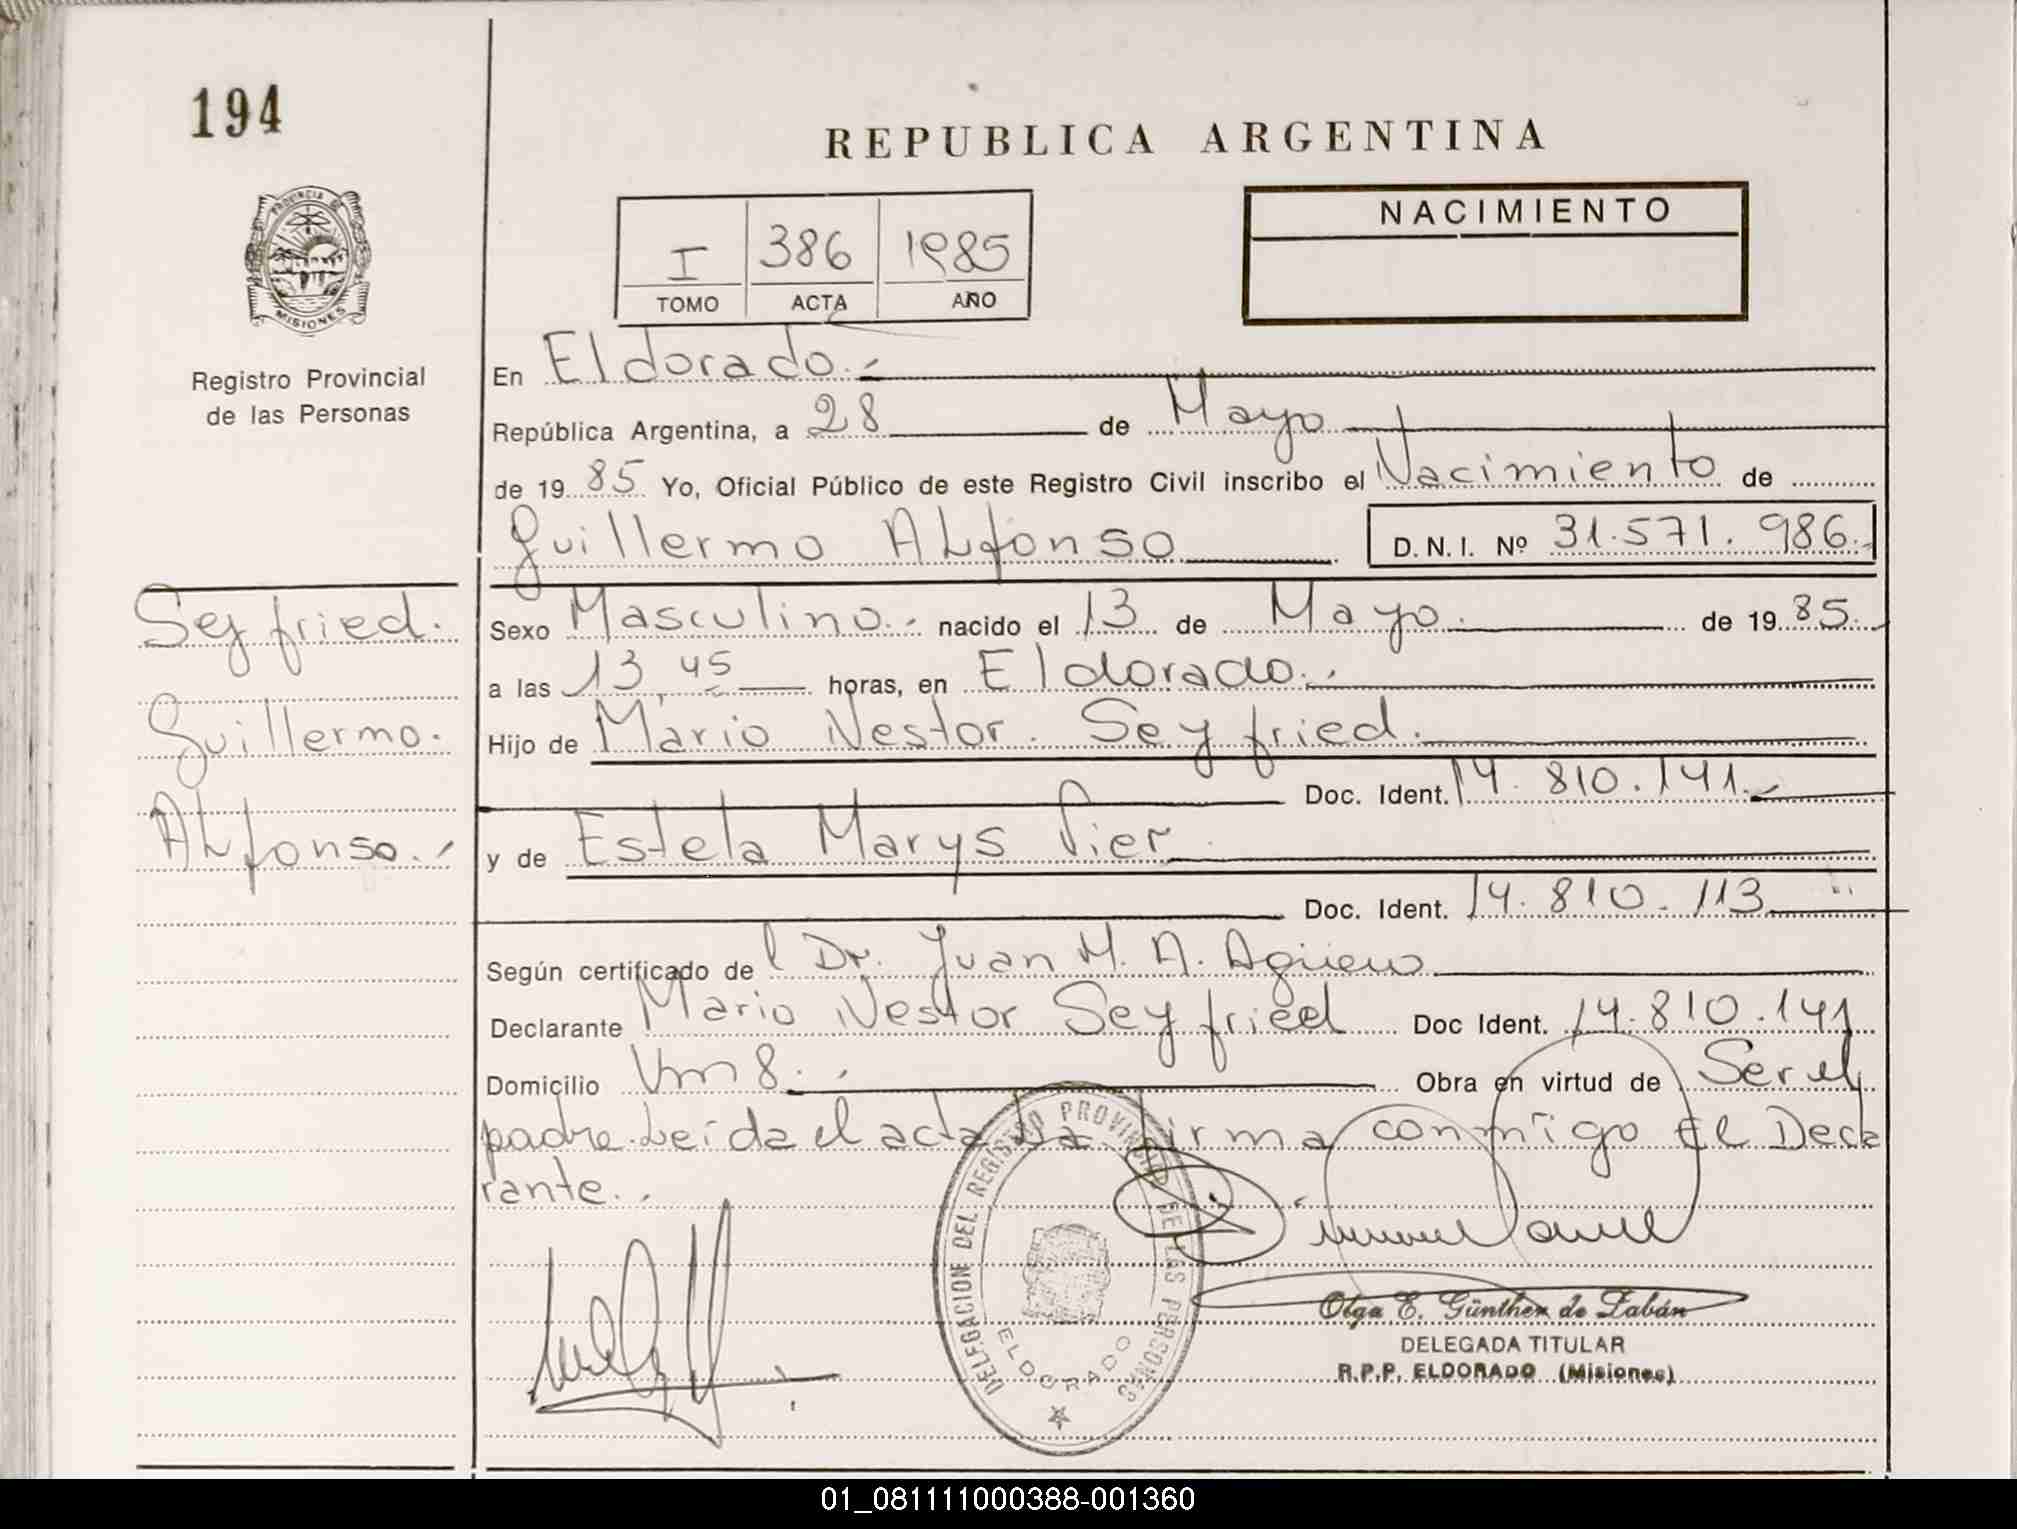 194
REPUBLICA ARGENTINA
PROVINCIA DE
MISIONES
Registro Provincial
de las Personas
I 386 1985
TOMO ACTA AÑO
NACIMIENTO
En Eldorado.-
República Argentina, a 28 de Mayo
de 1985 Yo, Oficial Público de este Registro Civil inscribo el Nacimiento de
Guillermo Alfonso D.N.I. Nº 31.571.986.-
Seyfried.
Guillermo.
Alfonso.-
Sexo Masculino.- nacido el 13 de Mayo. de 1985.-
a las 13,45 horas, en Eldorado.-
Hijo de Mario Nestor Seyfried.
Doc. Ident. 14.810.141.-
y de Estela Marys Pier
Doc. Ident. 14.810.113
Según certificado del Dr. Juan M. A. Agüero
Declarante Mario Nestor Seyfried Doc Ident. 14.810.141
Domicilio Km 8.- Obra en virtud de Ser el
padre. Leída el acta la firma conmigo El Decla
rante.-
DELEGACION DEL REGISTRO PROVINCIAL DE LAS PERSONAS
ELDORADO
Olga E. Günther de Zabán
DELEGADA TITULAR
R.P.P. ELDORADO (Misiones)
01_081111000388-001360